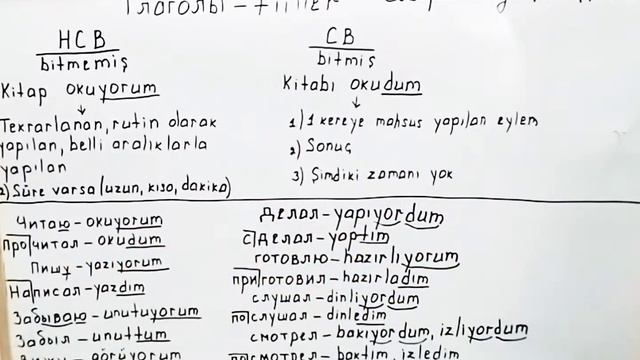 Глаголы - fiiller
НСВ
bitmemiş
Kitap okuyorum
Texrarlanan, rutin olarak
yapılan, belli aralıklarla
yapılan
2) Süre varsa (uzun, kısa, dakika)
СВ
bitmiş
Kitabı okudum
1) 1 kereye mahsus yapılan eylem
2) Sonuç
3) Şimdiki zamanı yok
Читаю - okuyorum
Прочитал - okudum
Пишу - yazıyorum
Написал - yazdım
Забываю - unutuyorum
Забыл - unuttum
görüyorum
Делал - yapıyordum
Сделал - yaptım
готовлю - hazırlıyorum
приготовил - hazırladım
слушал - dinliyordum
послушал - dinledim
смотрел - bakıyordum, izliyordum
посмотрел - baktım, izledim